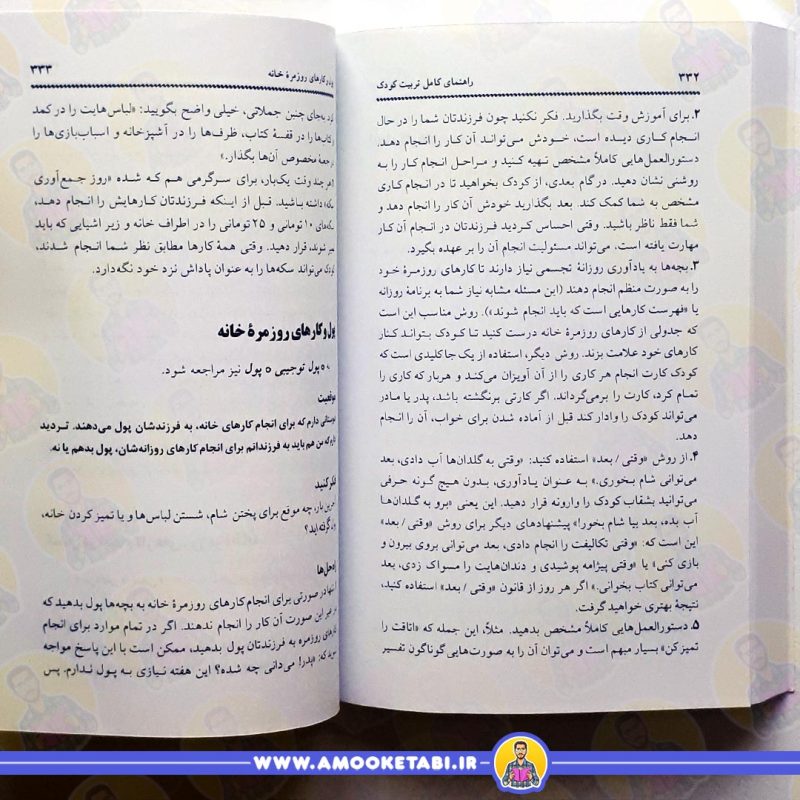 ۳۳۲ راهنمای کامل تربیت کودک
۲. برای آموزش وقت بگذارید. فکر نکنید چون فرزندتان شما را در حال
انجام کاری دیده است، خودش می‌تواند آن کار را انجام دهد.
دستورالعمل‌هایی کاملاً مشخص تهیه کنید و مراحل انجام کار را به
روشنی نشان دهید. در گام بعدی، از کودک بخواهید تا در انجام کاری
مشخص به شما کمک کند. بعد بگذارید خودش آن کار را انجام دهد و
شما فقط ناظر باشید. وقتی احساس کردید فرزندتان در انجام آن کار
مهارت یافته است، می‌تواند مسئولیت انجام آن را بر عهده بگیرد.
۳. بچه‌ها به یادآوری روزانهٔ تجسمی نیاز دارند تا کارهای روزمرهٔ خود
را به صورت منظم انجام دهند (این مسئله مشابه نیاز شما به برنامهٔ روزانه
یا «فهرست کارهایی است که باید انجام شوند»). روش مناسب این است
که جدولی از کارهای روزمرهٔ خانه درست کنید تا کودک بتواند کنار
کارهای خود علامت بزند. روش دیگر، استفاده از یک جاکلیدی است که
کودک کارت انجام هر کاری را از آن آویزان می‌کند و هربار که کاری را
تمام کرد، کارت را برمی‌گرداند. اگر کارتی برنگشته باشد، پدر یا مادر
می‌تواند کودک را وادار کند قبل از آماده شدن برای خواب، آن را انجام
دهد.
۴. از روش «وقتی / بعد» استفاده کنید: «وقتی به گلدان‌ها آب دادی، بعد
می‌توانی شام بخوری.» به عنوان یادآوری، بدون هیچ گونه حرفی
می‌توانید بشقاب کودک را وارونه قرار دهید. این یعنی «برو به گلدان‌ها
آب بده، بعد بیا شام بخور!» پیشنهادهای دیگر برای روش «وقتی / بعد»
این است که: «وقتی تکالیفت را انجام دادی، بعد می‌توانی بروی بیرون و
بازی کنی» یا «وقتی پیژامه پوشیدی و دندان‌هایت را مسواک زدی، بعد
می‌توانی کتاب بخوانی.» اگر هر روز از قانون «وقتی / بعد» استفاده کنید،
نتیجهٔ بهتری خواهید گرفت.
۵. دستورالعمل‌هایی کاملاً مشخص بدهید. مثلاً، این جمله که «اتاقت را
تمیز کن» بسیار مبهم است و می‌توان آن را به صورت‌هایی گوناگون تفسیر
و کارهای روزمرهٔ خانه ۳۳۳
به‌جای چنین جملاتی، خیلی واضح بگویید: «لباس‌هایت را در کمد
را در قفسهٔ کتاب، ظرف‌ها را در آشپزخانه و اسباب‌بازی‌ها را
مخصوص آن‌ها بگذار.»
هر چند وقت یک‌بار، برای سرگرمی هم که شده «روز جمع‌آوری
داشته باشید. قبل از اینکه فرزندتان کارهایش را انجام دهد،
۱۰ تومانی و ۲۵ تومانی را در اطراف خانه و زیر اشیایی که باید
شوند، قرار دهید. وقتی همهٔ کارها مطابق نظر شما انجام شدند،
کودک می‌تواند سکه‌ها را به عنوان پاداش نزد خود نگه‌دارد.
پول و کارهای روزمرهٔ خانه
پول توجیبی ٥ پول نیز مراجعه شود.
موقعیت
دوستانی دارم که برای انجام کارهای خانه، به فرزندشان پول می‌دهند. تردید
دارم که من هم باید به فرزندانم برای انجام کارهای روزانه‌شان، پول بدهم یا نه.
فکر کنید
بار، چه موقع برای پختن شام، شستن لباس‌ها و یا تمیز کردن خانه،
گرفته‌اید؟
راه‌حل‌ها
در صورتی برای انجام کارهای روزمرهٔ خانه به بچه‌ها پول بدهید که
این صورت آن کار را انجام ندهند. اگر در تمام موارد برای انجام
روزمره به فرزندتان پول بدهید، ممکن است با این پاسخ مواجه
که: «پدر! می‌دانی چه شده؟ این هفته نیازی به پول ندارم. پس
WWW.AMOOKETABI.IR